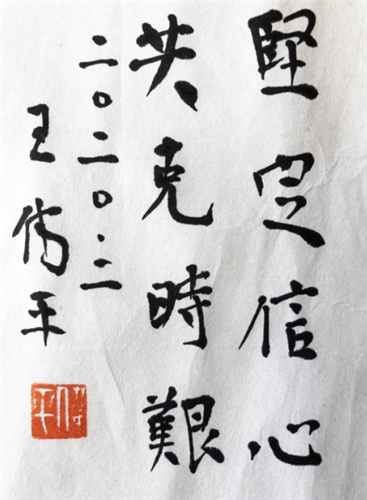 堅定信心
共克時艱
二〇二〇.二
王偉平